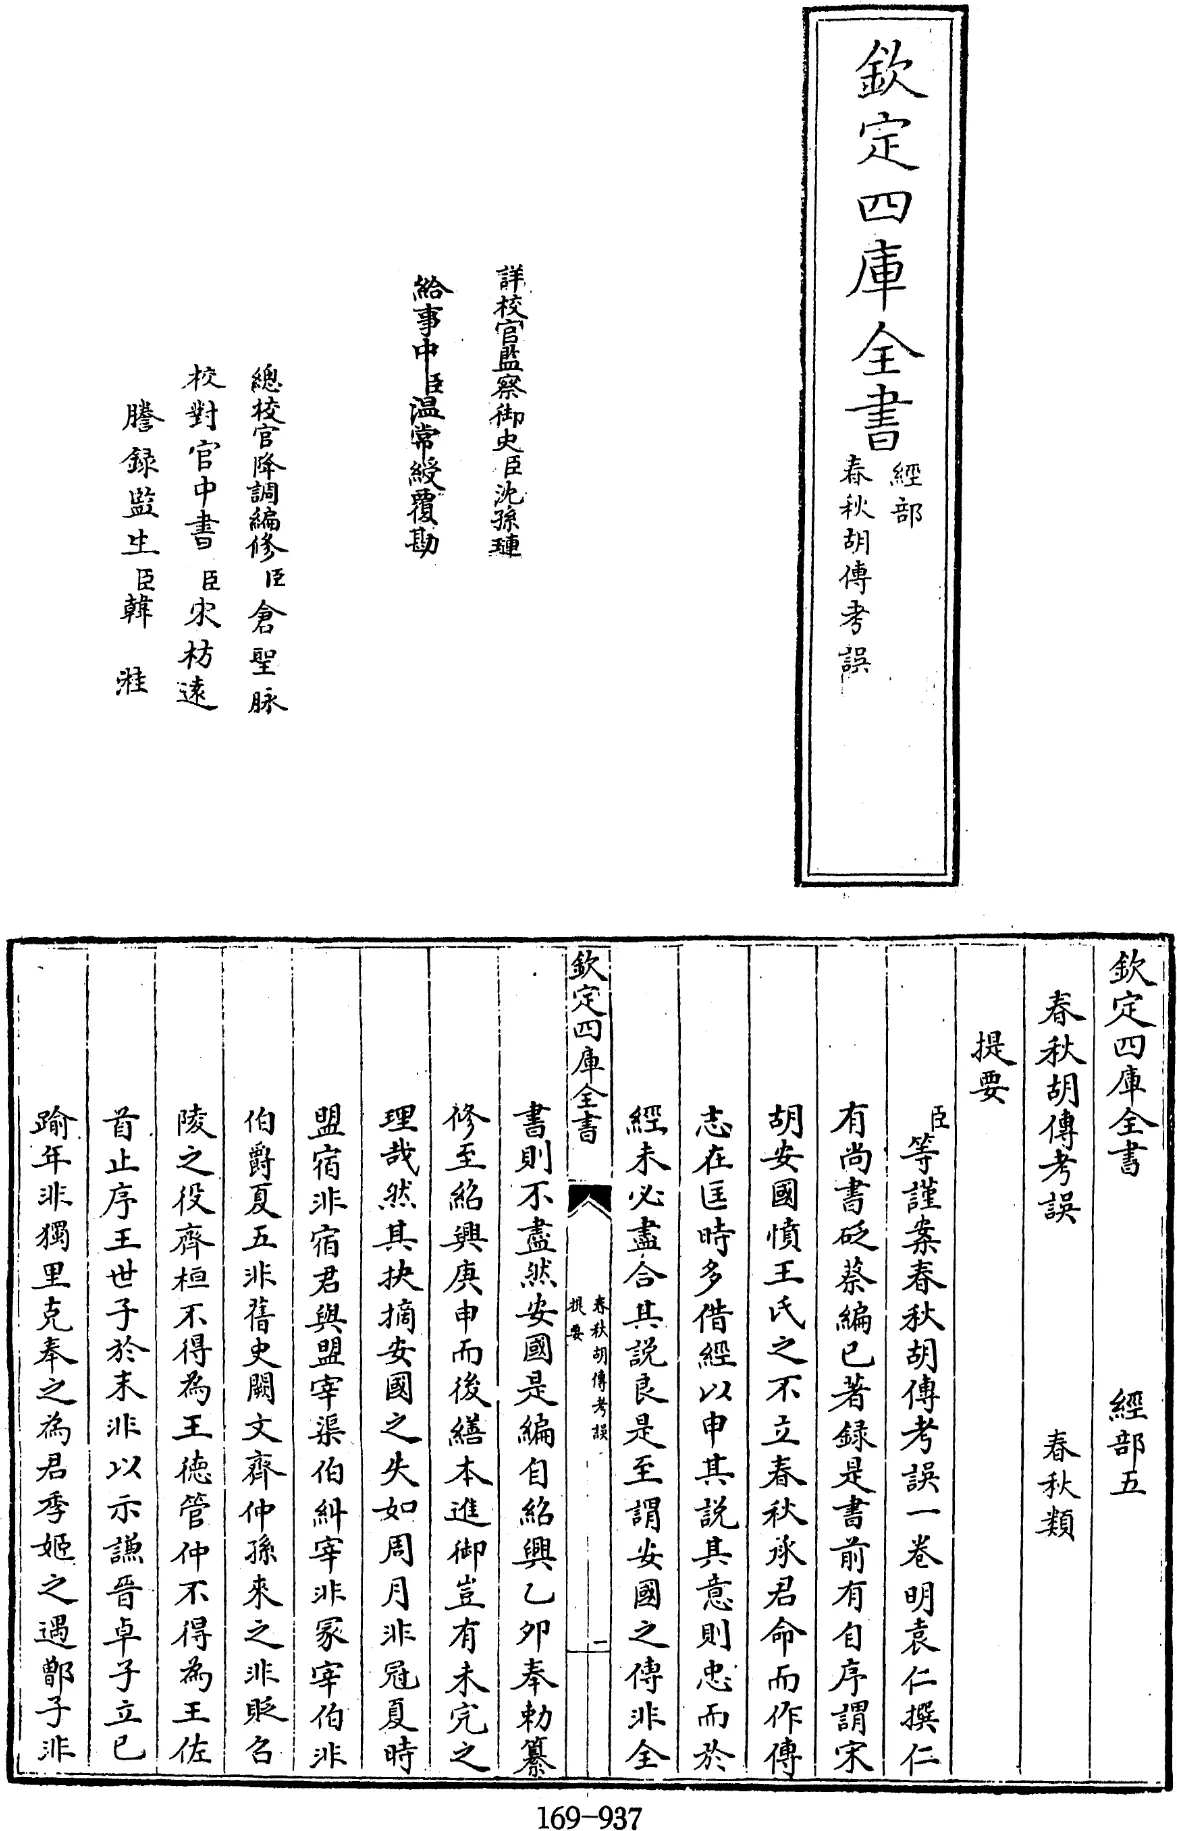 欽定四庫全書
經部
春秋胡傳考誤
詳校官監察御史臣沈孫璉
給事中臣温常綬覆勘
總校官降調編修臣倉聖脉
校對官中書臣宋枋遠
謄録監生臣韓湴
欽定四庫全書 經部五
春秋胡傳考誤 春秋類
提要
臣等謹案春秋胡傳考誤一卷明袁仁撰仁
有尚書砭蔡編已著録是書前有自序謂宋
胡安國憤王氏之不立春秋承君命而作傳
志在匡時多借經以申其説其意則忠而於
經未必盡合其説良是至謂安國之傳非全
欽定四庫全書
春秋胡傳考誤
提要
一
書則不盡然安國是編自紹興乙卯奉勅纂
修至紹興庚申而後繕本進御豈有未完之
理哉然其抉摘安國之失如周月非冠夏時
盟宿非宿君與盟宰渠伯糾宰非冢宰伯非
伯爵夏五非舊史闕文齊仲孫來之非貶召
陵之役齊桓不得為王德管仲不得為王佐
首止序王世子於末非以示謙晉卓子立已
踰年非獨里克奉之為君季姬之遇鄫子非
169-937